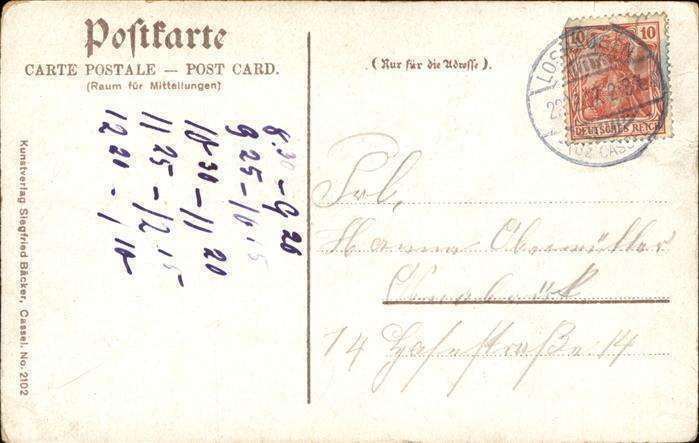 Postkarte
CARTE POSTALE — POST CARD.
(Raum für Mitteilungen)
(Nur für die Adresse).
10 10
DEUTSCHES REICH
8.30 - 9 20
9 25 - 10 15
10 30 - 11 20
11 25 - 12 15
12 20 - 1 10
Frl.
Hanna Obermüller
Osnabrück
14 Hasestraße 14
Kunstverlag Siegfried Bäcker, Cassel. No. 2102